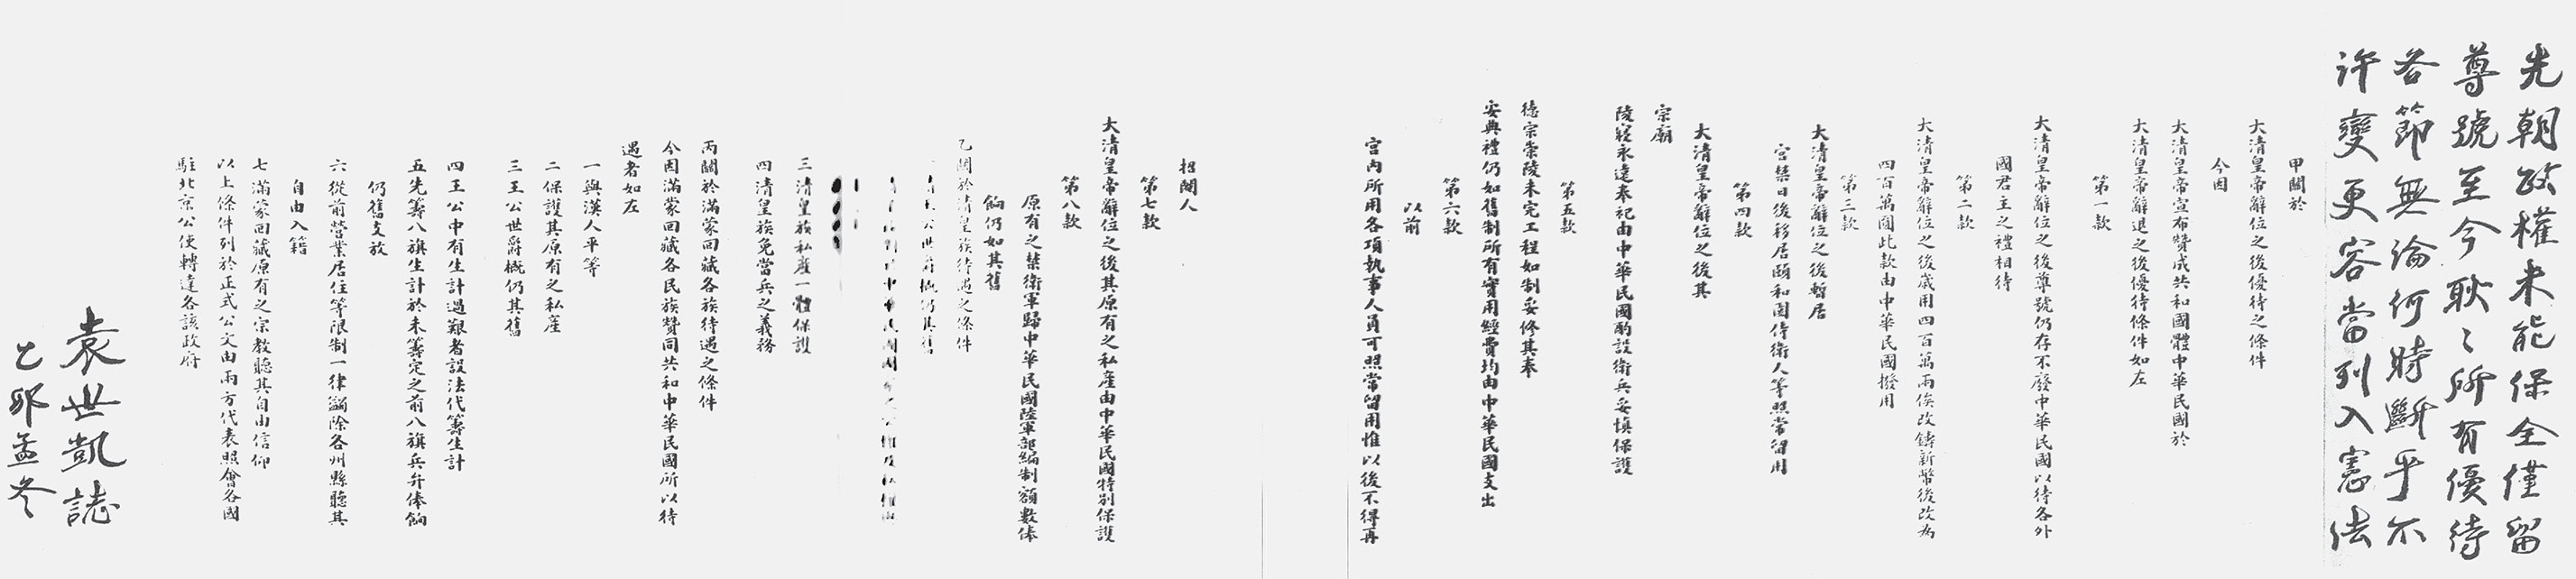 先朝政權未能保全僅留
尊號至今耿〻所有優待
各節無論何時斷乎不
許變更容當列入憲法
甲關於
大清皇帝辭位之後優待之條件
今因
大清皇帝宣布贊成共和國體中華民國於
大清皇帝辭退之後優待條件如左
第一款
大清皇帝辭位之後尊號仍存不廢中華民國以待各外
國君主之禮相待
第二款
大清皇帝辭位之後歲用四百萬兩俟改鑄新幣後改為
四百萬圓此款由中華民國撥用
第三款
大清皇帝辭位之後暫居
宮禁日後移居頤和園侍衛人等照常留用
第四款
大清皇帝辭位之後其
宗廟
陵寢永遠奉祀由中華民國酌設衛兵妥慎保護
第五款
德宗崇陵未完工程如制妥修其奉
安典禮仍如舊制所有實用經費均由中華民國支出
第六款
以前
宮內所用各項執事人員可照常留用惟以後不得再
招閹人
第七款
大清皇帝辭位之後其原有之私產由中華民國特別保護
第八款
原有之禁衛軍歸中華民國陸軍部編制額數俸
餉仍如其舊
乙關於清皇族待遇之條件
王公世爵概仍其舊
中華民國國
三清皇族私產一體保護
四清皇族免當兵之義務
丙關於滿蒙回藏各族待遇之條件
今因滿蒙回藏各民族贊同共和中華民國所以待
遇者如左
一與漢人平等
二保護其原有之私產
三王公世爵概仍其舊
四王公中有生計過艱者設法代籌生計
五先籌八旗生計於未籌定之前八旗兵弁俸餉
仍舊支放
六從前營業居住等限制一律蠲除各州縣聽其
自由入籍
七滿蒙回藏原有之宗教聽其自由信仰
以上條件列於正式公文由兩方代表照會各國
駐北京公使轉達各該政府
袁世凱誌
乙卯孟冬